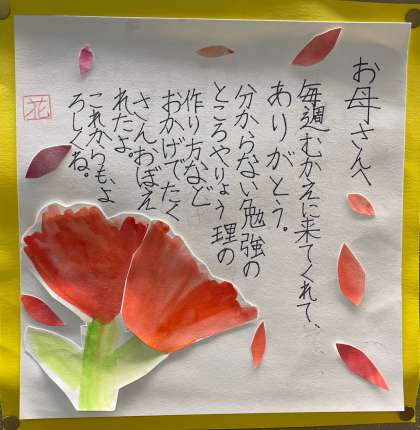 お母さんへ
毎週むかえに来てくれて、
ありがとう。
分からない勉強の
ところやりょう理の
作り方など
おかげでたく
さんおぼえ
れたよ。
これからも、よ
ろしくね。
花